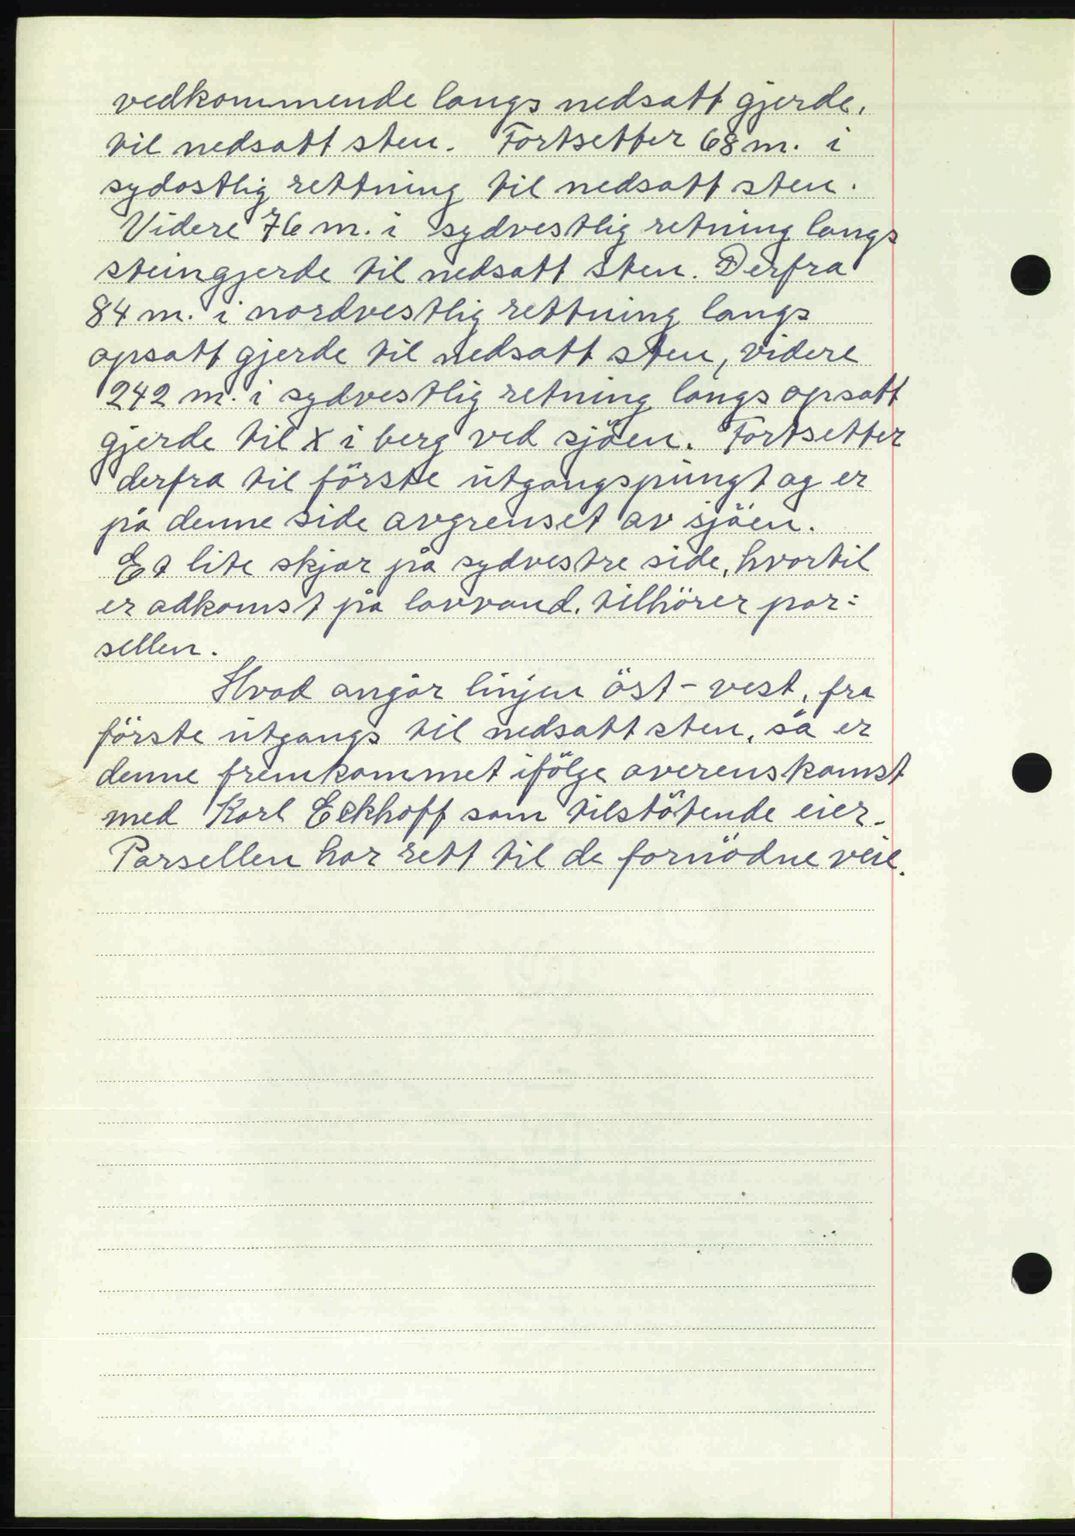 vedkommende langs nedsatt gjerde,
til nedsatt sten. Fortsetter 68 m. i
sydostlig rettning til nedsatt sten.
Videre 76 m. i sydvestlig retning langs
steingjerde til nedsatt sten. Derfra
84 m. i nordvestlig rettning langs
opsatt gjerde til nedsatt sten, videre
242 m. i sydvestlig retning langs opsatt
gjerde til X i berg ved sjöen. Fortsetter
derfra til förste utgangspungt og er
på denne side avgrenset av sjöen.
Et lite skjær på sydvestre side, hvortil
er adkomst på lavvand, tilhörer par:
sellen.
Hvad angår linjen öst - vest, fra
förste utgangs til nedsatt sten, så er
denne fremkommet ifölge overenskomst
med Karl Eckhoff som tilstötende eier.
Parsellen har rett til de fornödne veie.